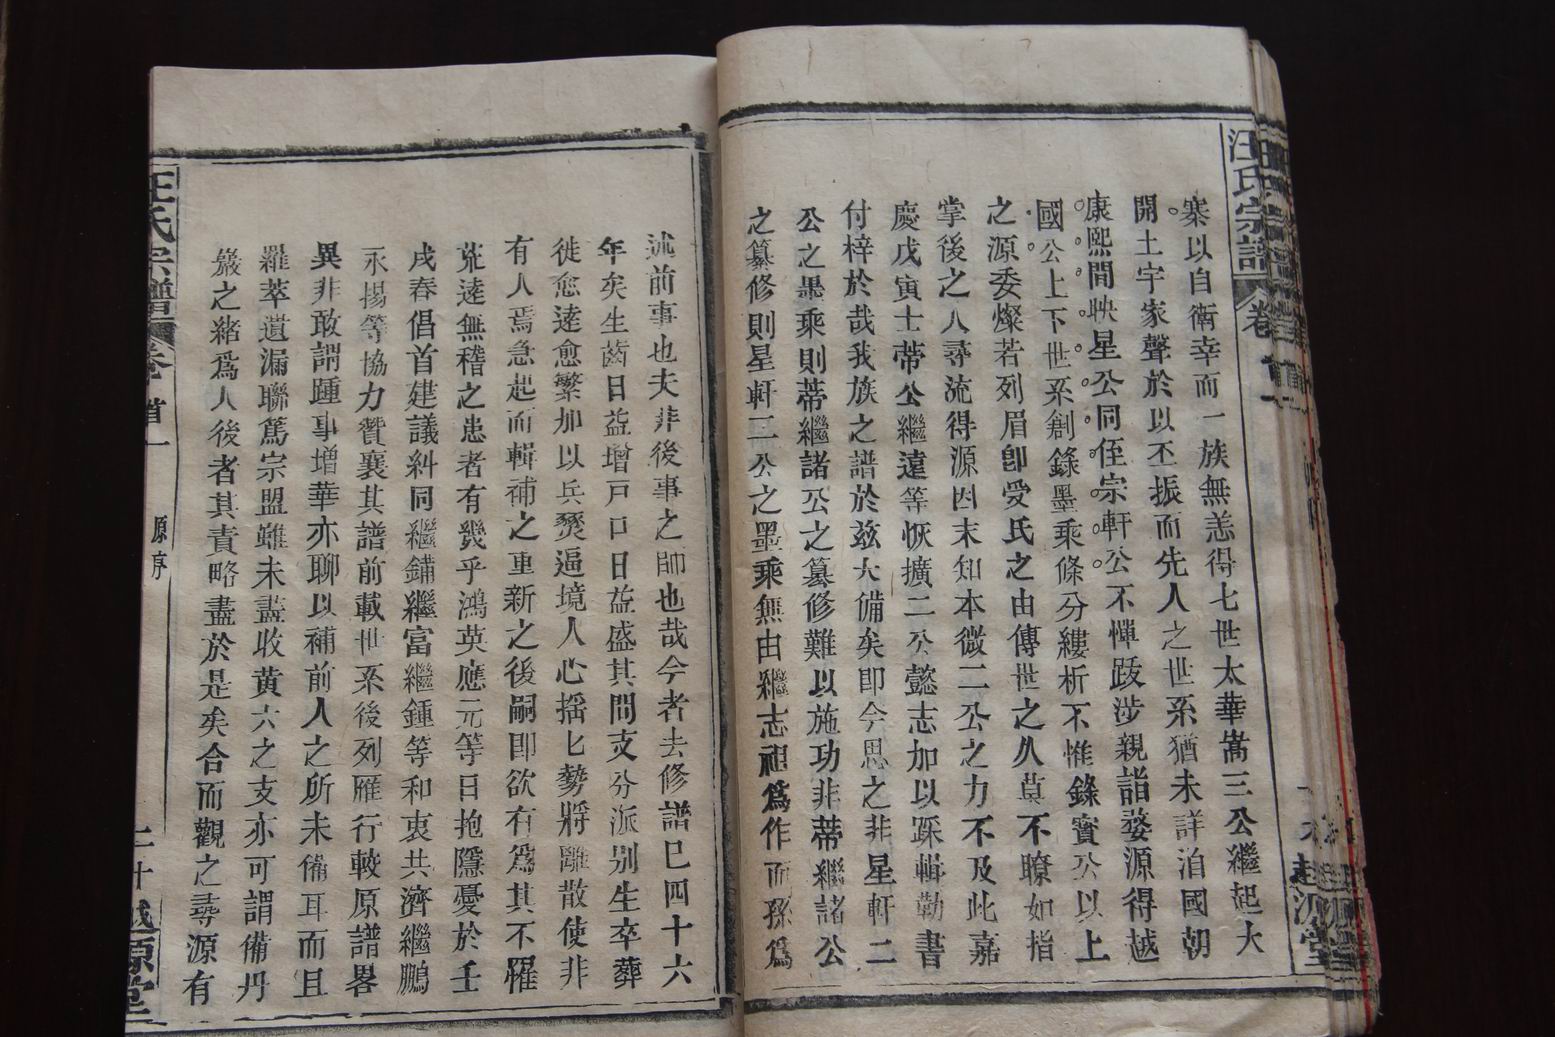 汪氏宗譜 卷
寨以自衛幸而一族無恙得七世太華嵩三公繼起大
開土宇家聲於以丕振而先人之世系猶未詳洎國朝
康熙間映星公同侄宗軒公不憚跋涉親詣婺源得越
國公上下世系創錄墨乘條分縷析不惟錄實公以上
之源委燦若列眉卽受氏之由傳世之久莫不瞭如指
掌後之人尋流得源因末知本微二公之力不及此嘉
慶戊寅士蒂公繼遠等恢擴二公懿志加以踩輯勒書
付梓於哉我族之譜於茲大備矣即今思之非星軒二
公之墨乘則蒂繼諸公之纂修難以施功非蒂繼諸公
之纂修則星軒二公之墨乘無由繼志祖爲作而孫爲
述前事也夫非後事之師也哉今者去修譜已四十六
年矣生齒日益增戸口日益盛其間支分派別生卒葬
徙愈遠愈繁加以兵燹逼境人心搖匕勢將離散使非
有人焉急起而輯補之重新之後嗣即欲有爲其不罹
荒遠無稽之患者有幾乎鴻英應元等日抱隱憂於壬
戌春倡首建議糾同繼鏽繼富繼鍾等和衷共濟繼鵬
永揚等協力贊襄其譜前載世系後列雁行較原譜畧
異非敢謂踵事增華亦聊以補前人之所未備耳而且
羅萃遺漏聯篤宗盟雖未盡收黄六之支亦可謂備丹
嚴之緒爲人後者其責略盡於是矣合而觀之尋源有
汪氏宗譜 卷首一 原序 二十 越源堂